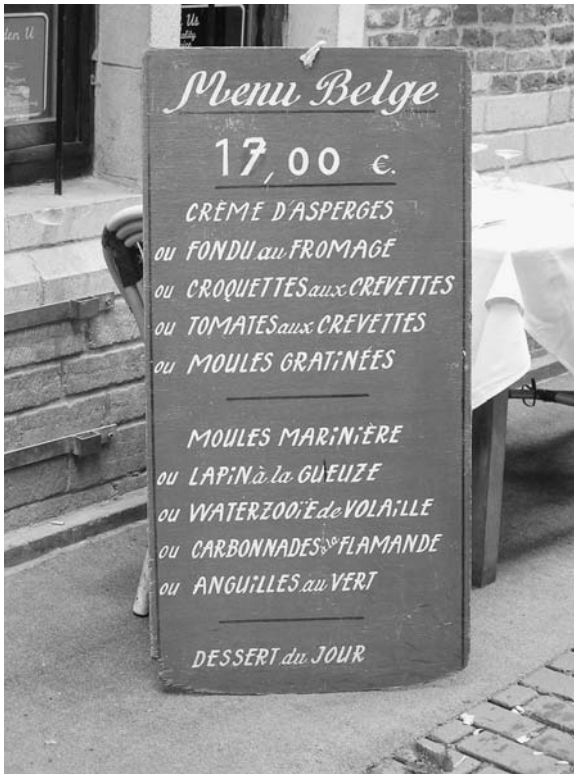 den U
Us
Menu Belge
17,00 €.
CRÈME D'ASPERGES
ou FONDU au FROMAGE
ou CROQUETTES aux CREVETTES
ou TOMATES aux CREVETTES
ou MOULES GRATINÉES
MOULES MARINIÈRE
ou LAPIN à la GUEUZE
ou WATERZOOÏE de VOLAILLE
ou CARBONNADES à la FLAMANDE
ou ANGUILLES au VERT
DESSERT du JOUR